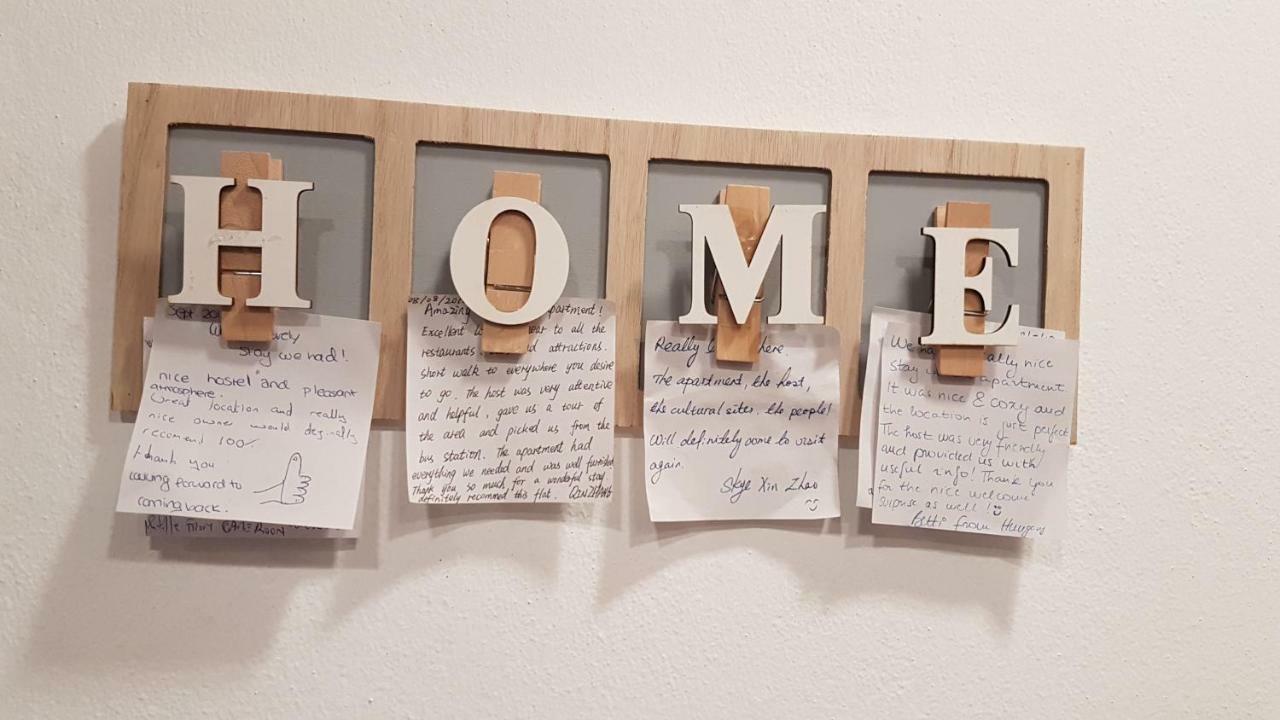 HOME
Sept
stay we had!
nice hostel and pleasant
atmosphere.
Great location and really
nice owner would definally
recomend 100%
thank you
looking forward to
coming back.
08/08/201
Amazing partment!
Excellent to all the
restaurants attractions.
short walk to everywhere you desire
to go. The host was very attentive
and helpful, gave us a tour of
the area and picked us from the
bus station. The apartment had
everything we needed and was well furnished
Thank you so much for a wonderful stay
definitely recommend this flat.
Really here.
The apartment, the host,
the cultural sites, the people!
Will definitely come to visit
again.
Skye Xin Zhao
We really nice
stay apartment.
It was nice & cozy and
the location is just perfect
The host was very friendly
and provided us with
useful info! Thank you
for the nice welcome
surprise as well!
Betti from Hungary